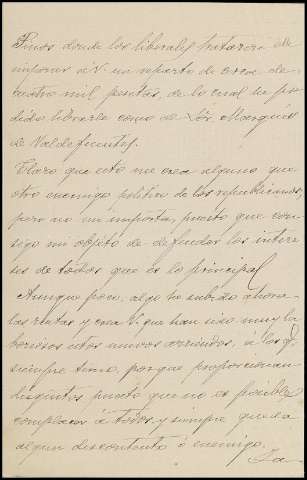 Pinos donde los liberales trataron de
imponer á V. un reparto de cerca de
cuatro mil pesetas, de lo cual he po-
dido librarle como de Sor. Marqués
de Valdefuentes.
Claro que esto me crea alguno que
otro enemigo político de los republicanos,
pero no me importa, puesto que con-
sigo mi objeto de defender los intere-
ses de todos que es lo principal
Aunque poco, algo he subido ahora
las rentas y crea V. que han sido muy la-
boriosos estos nuevos arriendos, á los q.
siempre temo, porque proporcionan
disgustos puesto que no es posible
complacer á todos, y siempre queda
algun descontento ó enemigo.
La